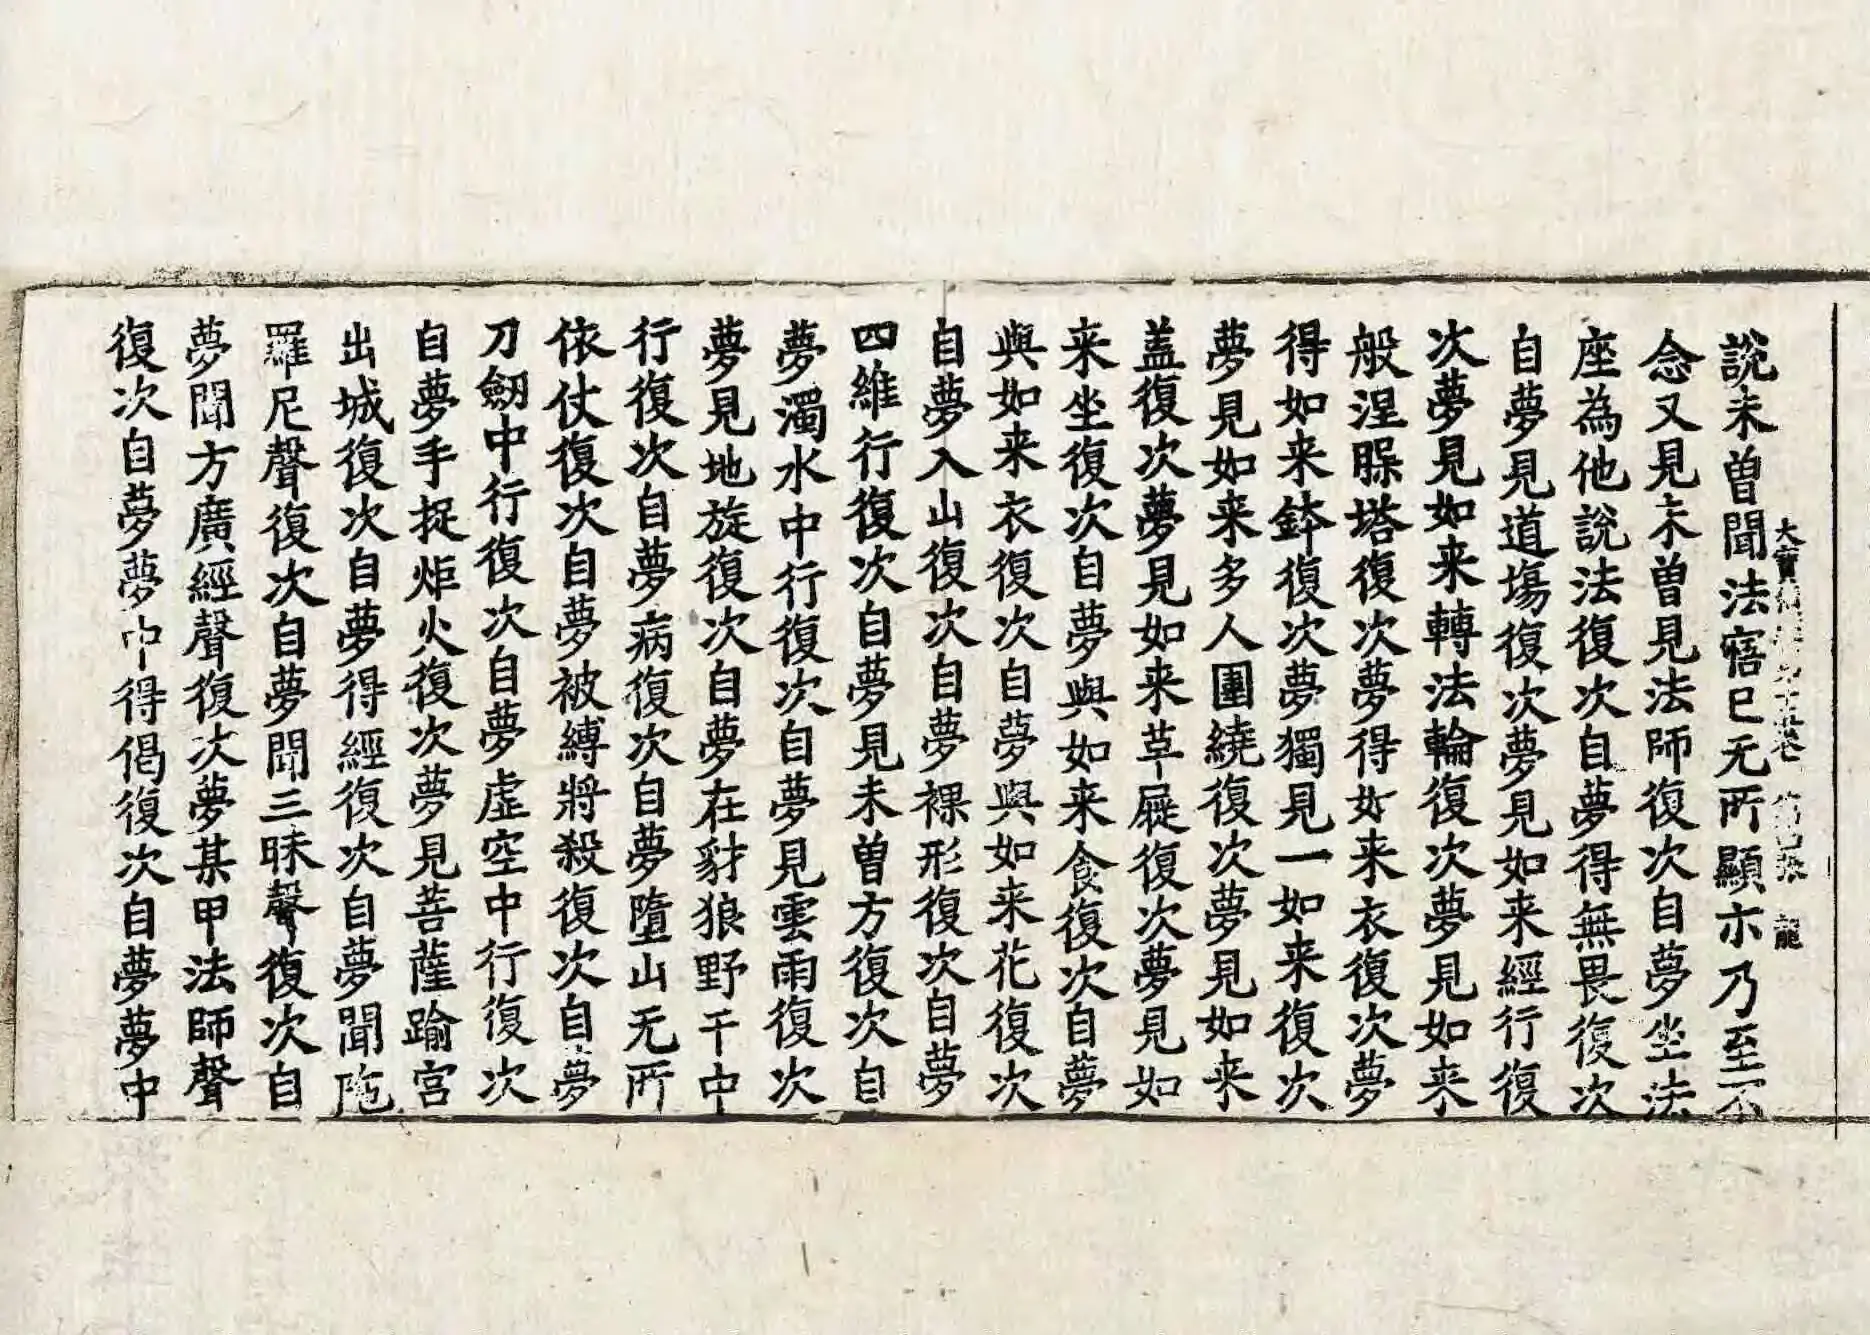 大寶積經第十五卷 第四張 龍
說未曽聞法寤已无所顯示乃至不
念又見未曽見法師復次自夢坐法
座為他說法復次自夢得無畏復次
自夢見道場復次夢見如来經行復
次夢見如来轉法輪復次夢見如来
般涅腂塔復次夢得如来衣復次夢
得如来鉢復次夢獨見一如来復次
夢見如来多人圍繞復次夢見如来
盖復次夢見如来草屣復次夢見如
来坐復次自夢與如来食復次自夢
與如来衣復次自夢與如来花復次
自夢入山復次自夢裸形復次自夢
四維行復次自夢見未曽方復次自
夢濁水中行復次自夢見雲雨復次
夢見地旋復次自夢在豺狼野干中
行復次自夢病復次自夢墮山无所
依仗復次自夢被縛將殺復次自夢
刀劒中行復次自夢虛空中行復次
自夢手捉炬火復次夢見菩薩踰宮
出城復次自夢得經復次自夢聞陁
羅尼聲復次自夢聞三昧聲復次自
夢聞方廣經聲復次夢某甲法師聲
復次自夢夢中得偈復次自夢夢中